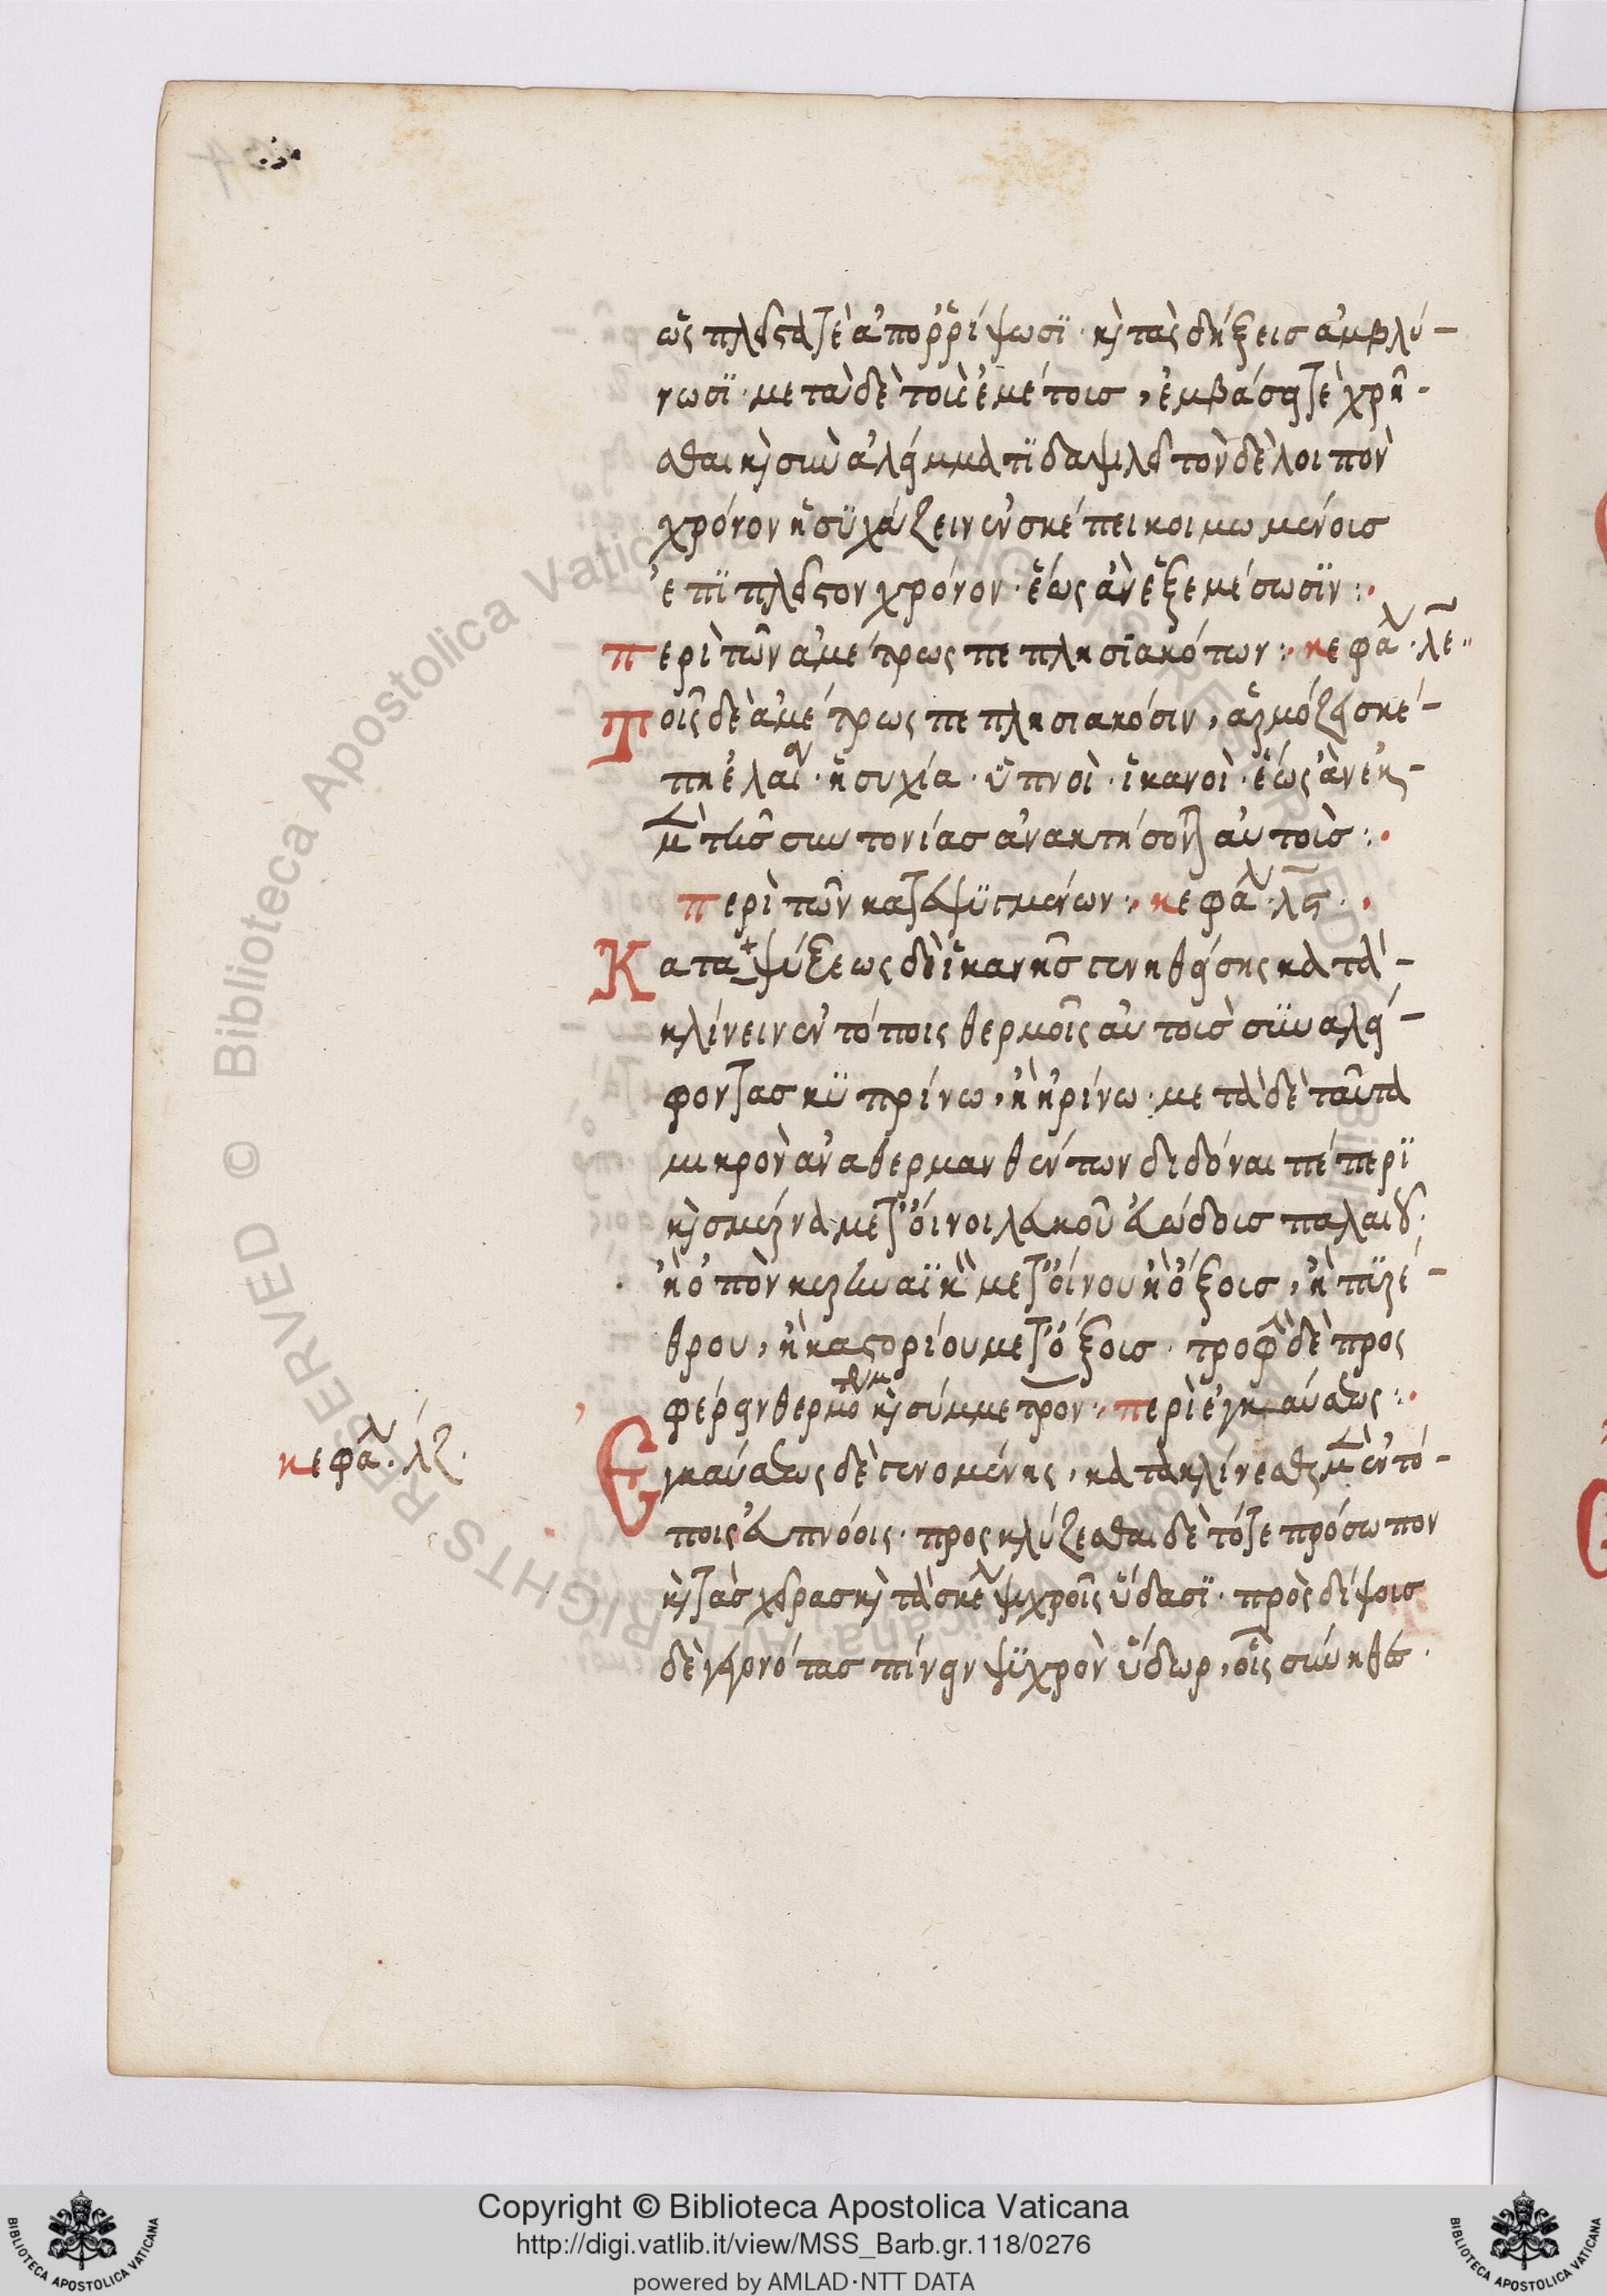 ὡς πλεῖστά τε ἀπορρίψωσϊ· καὶ τὰς δήξεις ἀμβλύ-
νωσϊ· μετὰ δὲ τοὺς ἐμέτους, ἐμβάσει τε χρῆ-
σθαι καὶ σὺν ἀλείμματϊ δαψιλεῖ τὸν δὲ λοιπὸν
χρόνον ἡσϋχάζειν ἐν σκέπει κοιμωμένοις
ἐπϊ πλεῖστον χρόνον· ἕως ἂν ἐξεμέσωσϊν:·
περὶ τῶν ἀμέτρως πεπλησϊακότων:· κεφαλ· λε
Τοῖς δὲ ἀμέτρως πεπλησιακόσιν, ἁρμόζει σκέ-
πη ἐλαι · ἡσυχία· ὕπνοι· ἱκανοὶ· ἕως ἂν ἐκ
τῆς συντονίας ἀνακτήσονται αὐτοὺς:·
περὶ τῶν κατεψϋγμένων:· κεφαλ· λϛ·
Καταψύξεως δὲ ἱκανῆς γενηθείσης κατα-
κλίνειν ἐν τόποις θερμοῖς αὐτοὺς σϋναλεί-
φοντας κϋπρίνω, ἢ ἠρίνω· μετὰ δὲ ταῦτα
μικρὸν ἀναθερμανθέντων διδόναι πέπερϊ
καὶ σμύρναν μετ' οἴνου λευκοῦ εὐώδους παλαιοῦ·
ἢ ὀπὸν κυρηναϊκὸν μετ' οἴνου ἢ ὄξους, ἢ πϋρέ-
θρου, ἢ καστορίου μετ' ὄξους· τροφὴν δὲ προς
φέρειν θερμο καὶ σύμμετρον:· περὶ ἐγκαύσεως:·
κεφαλ· λζ·
Εγκαύσεως δὲ γενομένης, κατακλίνεσθαι μὲν ἐν τό-
ποις εὐπνόοις· προςκλύζεσθαι δὲ τότε πρόσωπον
καὶ τὰς χεῖρας καὶ τὰ σκέλη ψυχροῖς ὕδασϊ· πρὸς δίψους
δὲ γεγονότας πίνειν ψϋχρὸν ὕδωρ, οἷς σύνηθες·
Copyright © Biblioteca Apostolica Vaticana
http://digi.vatlib.it/view/MSS_Barb.gr.118/0276
powered by AMLAD·NTT DATA